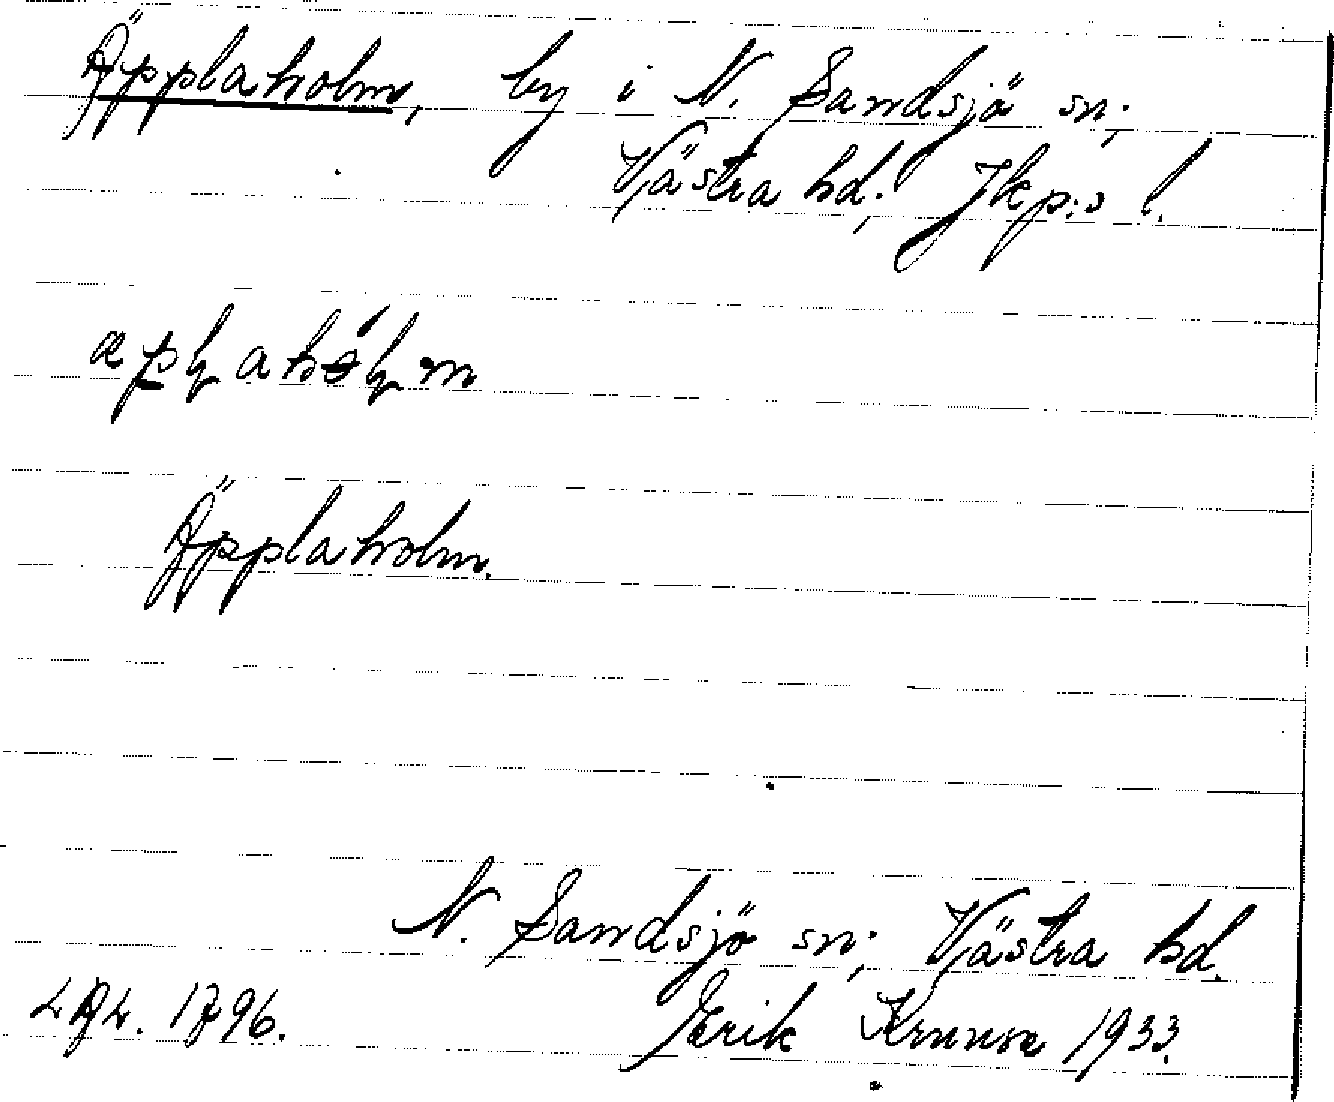 Äpplaholm, by i N. Sandsjö sn;
Västra hd; Jkp:s l.
Äpplaholm.
N. Sandsjö sn; Västra hd.
1796. Erik 1933.